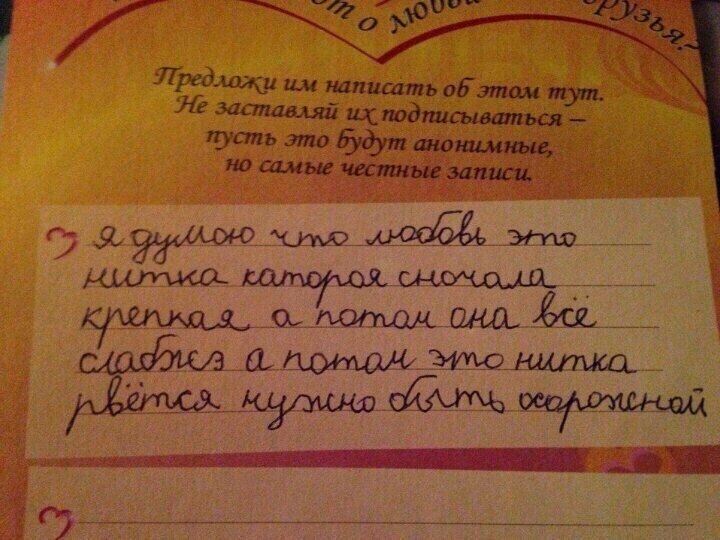 от о любви друзья?
Предложи им написать об этом тут.
Не заставляй их подписываться –
пусть это будут анонимные,
но самые честные записи.
я думою что любовь это
нитка каторая сночала
крепкая а потом она всё
слабжэ а потом это нитка
рвётся нужно быть охорожной